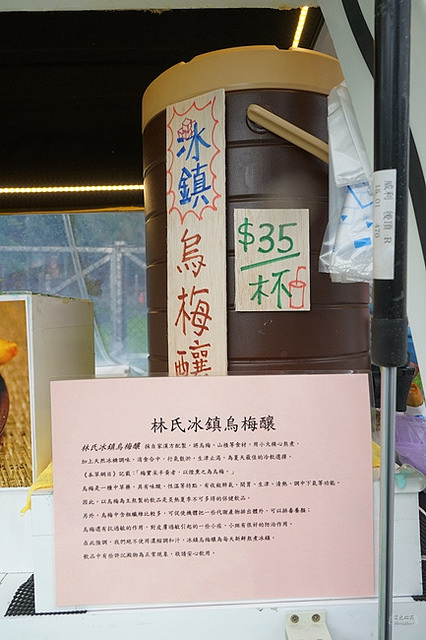 冰鎮
烏梅釀
$35
杯
林氏冰鎮烏梅釀
林氏冰鎮烏梅釀 採自家漢方配製，將烏梅、山楂等食材，用小火精心熬煮，
加上天然冰糖調味，消食合中，行氣散淤，生津止渴，為夏天最佳的冷飲選擇。
《本草綱目》記載：「梅實采半黃者，以煙熏之為烏梅。」
烏梅是一種中草藥，具有味酸、性溫等特點，有收斂肺氣、開胃、生津、清熱、調中下氣等功能。
因此，以烏梅為主熬製的飲品是炎熱夏季不可多得的保健飲品。
另外，烏梅中含粗纖維比較多，可促使機體把一些代謝產物排出體外，可以排毒養顏；
烏梅還有抗過敏的作用，對皮膚過敏引起的一些小痘、小斑有很好的防治作用。
在此強調，我們絕不使用濃縮調和汁，冰鎮烏梅釀為每天新鮮熬煮冰鎮。
飲品中有些許沉澱物為正常現象，敬請安心飲用。